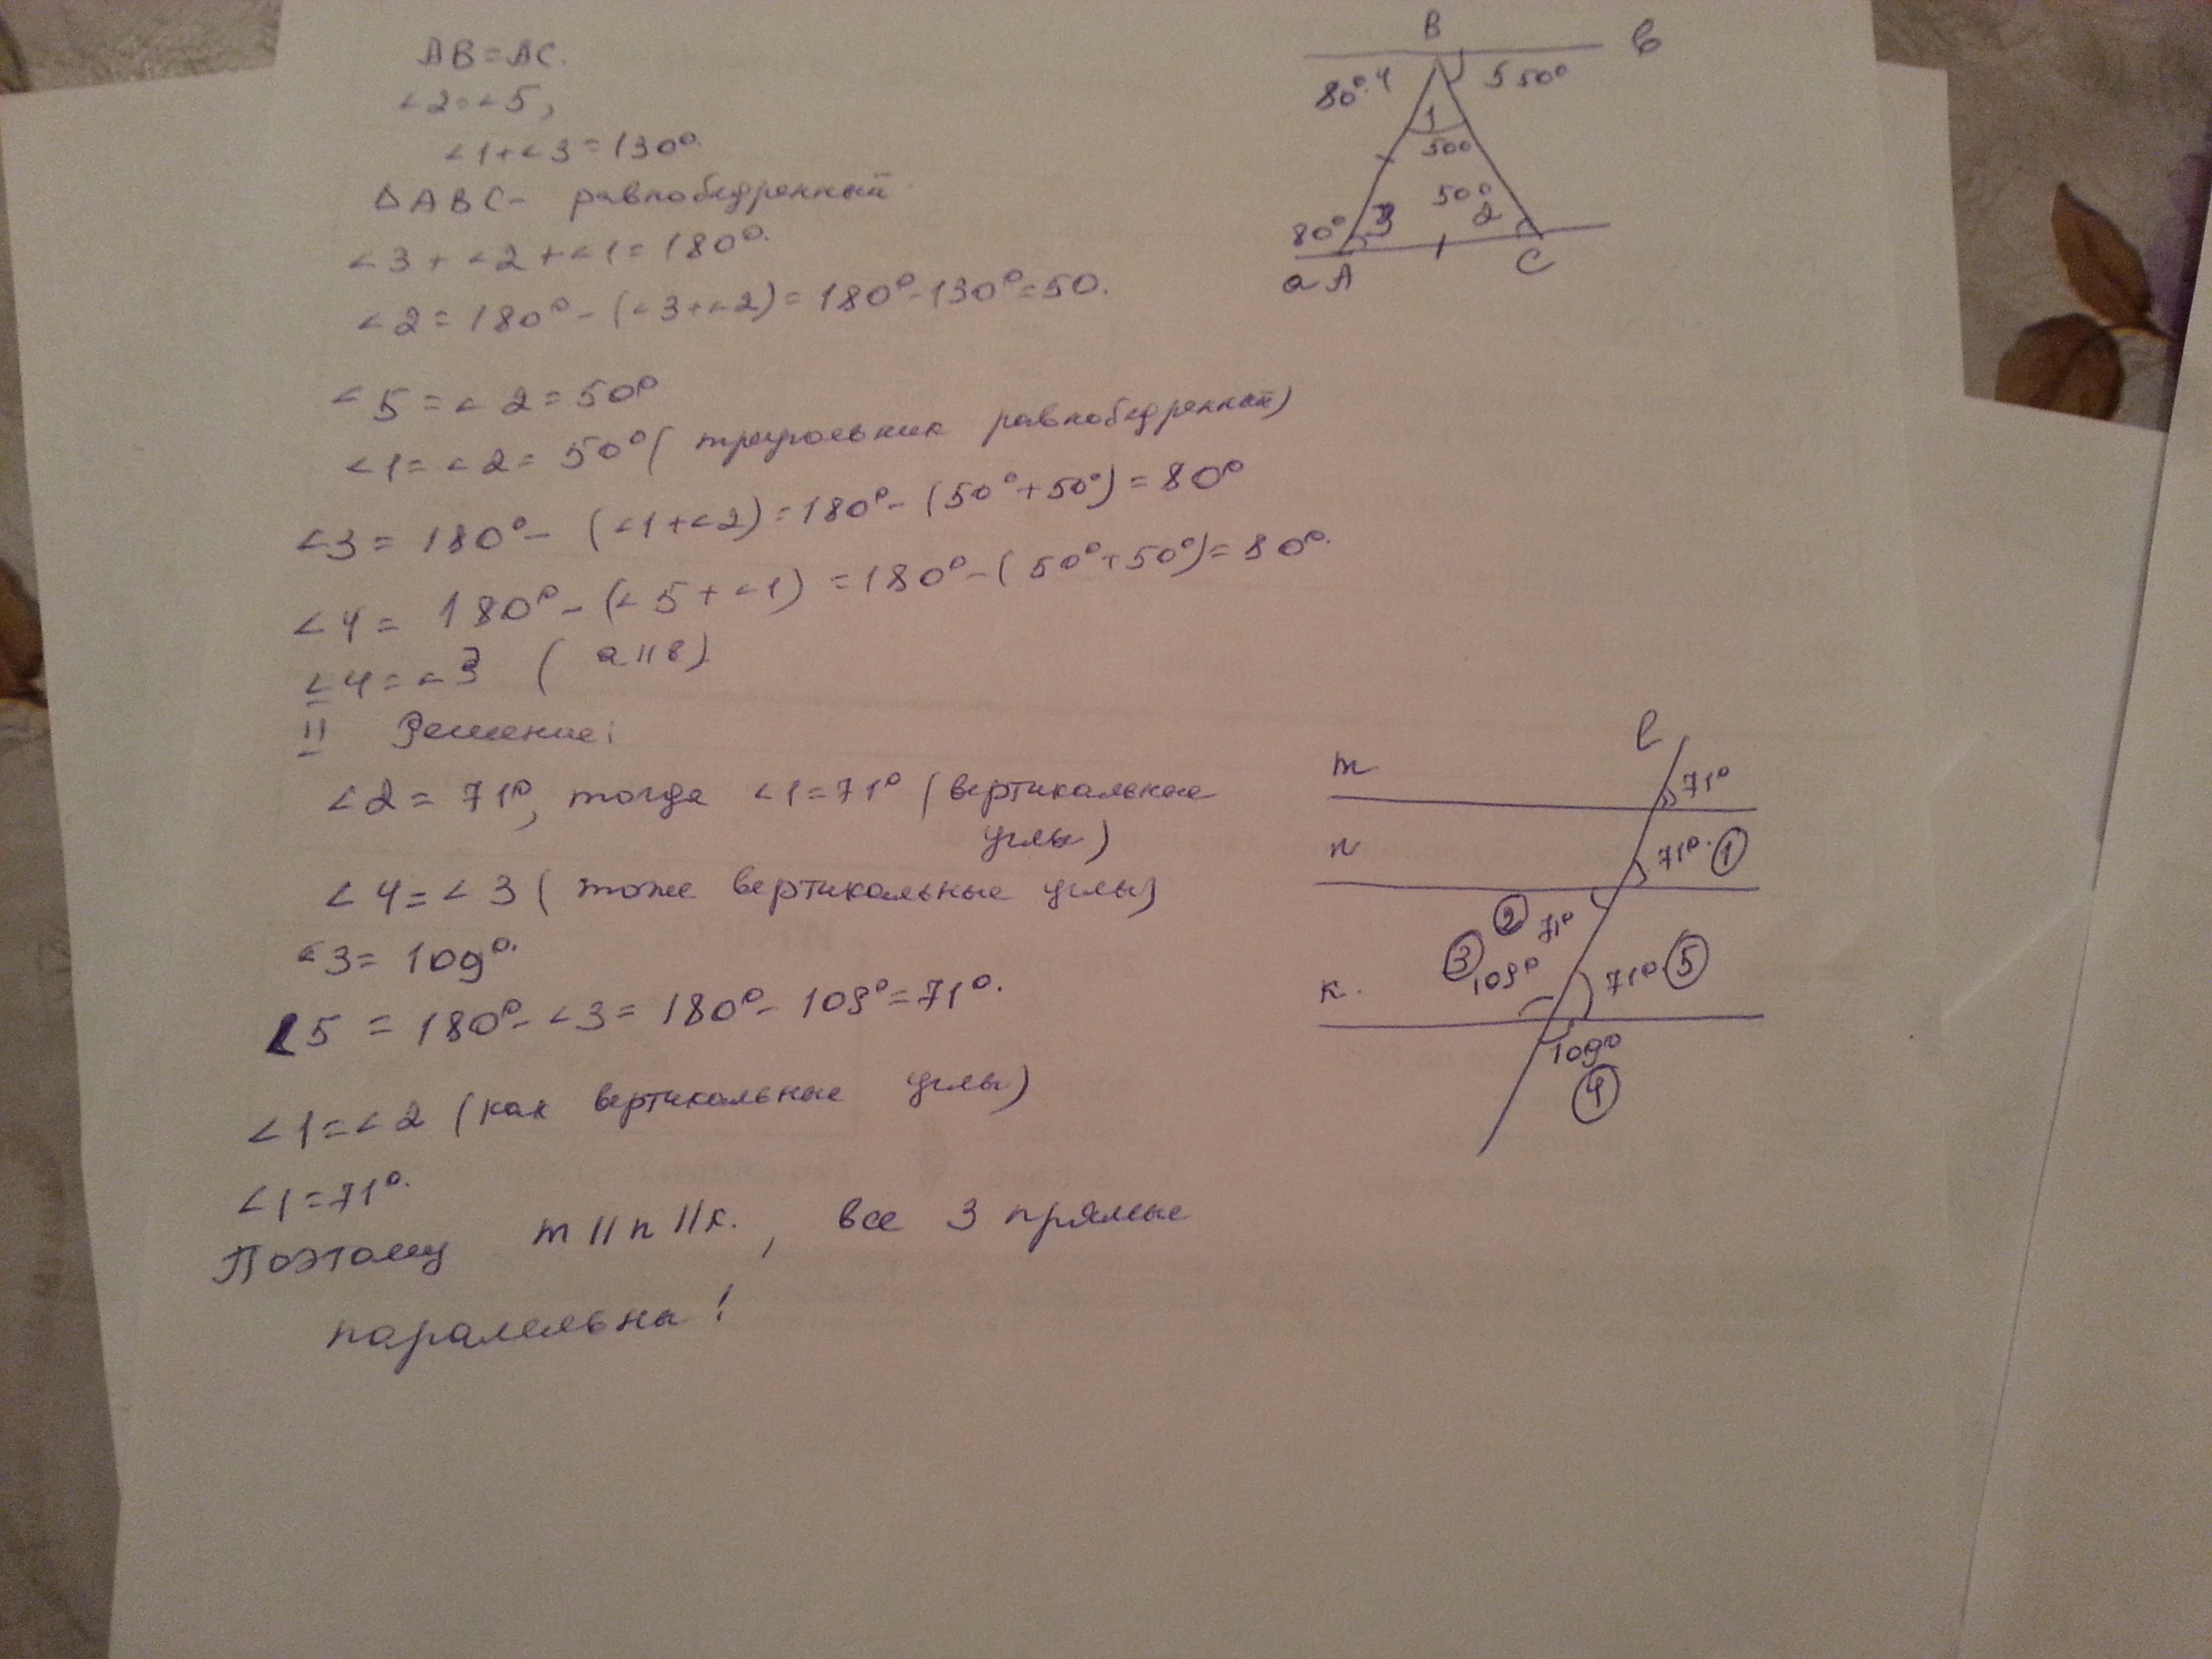 AB = AC.
∠2 = ∠5,
∠1 + ∠3 = 130°.
△ABC - равнобедренный
∠3 + ∠2 + ∠1 = 180°.
∠2 = 180° - (∠3 + ∠2) = 180° - 130° = 50.
∠5 = ∠2 = 50°
∠1 = ∠2 = 50° (треугольник равнобедренный)
∠3 = 180° - (∠1 + ∠2) = 180° - (50° + 50°) = 80°
∠4 = 180° - (∠5 + ∠1) = 180° - (50° + 50°) = 80°.
∠4 = ∠3 (a || в)
II Решение:
∠2 = 71°, тогда ∠1 = 71° (вертикальные
углы)
∠4 = ∠3 (тоже вертикальные углы)
∠3 = 109°.
∠5 = 180° - ∠3 = 180° - 109° = 71°.
∠1 = ∠2 (как вертикальные углы)
∠1 = 71°.
Поэтому m || n || к., все 3 прямые
паралельны!
B
в
80° 4
5 50°
1
50°
50°
80° 3
2
a A
C
l
m
71°
n
71°. 1
2 71°
3 109°
71° 5
к.
109°
4